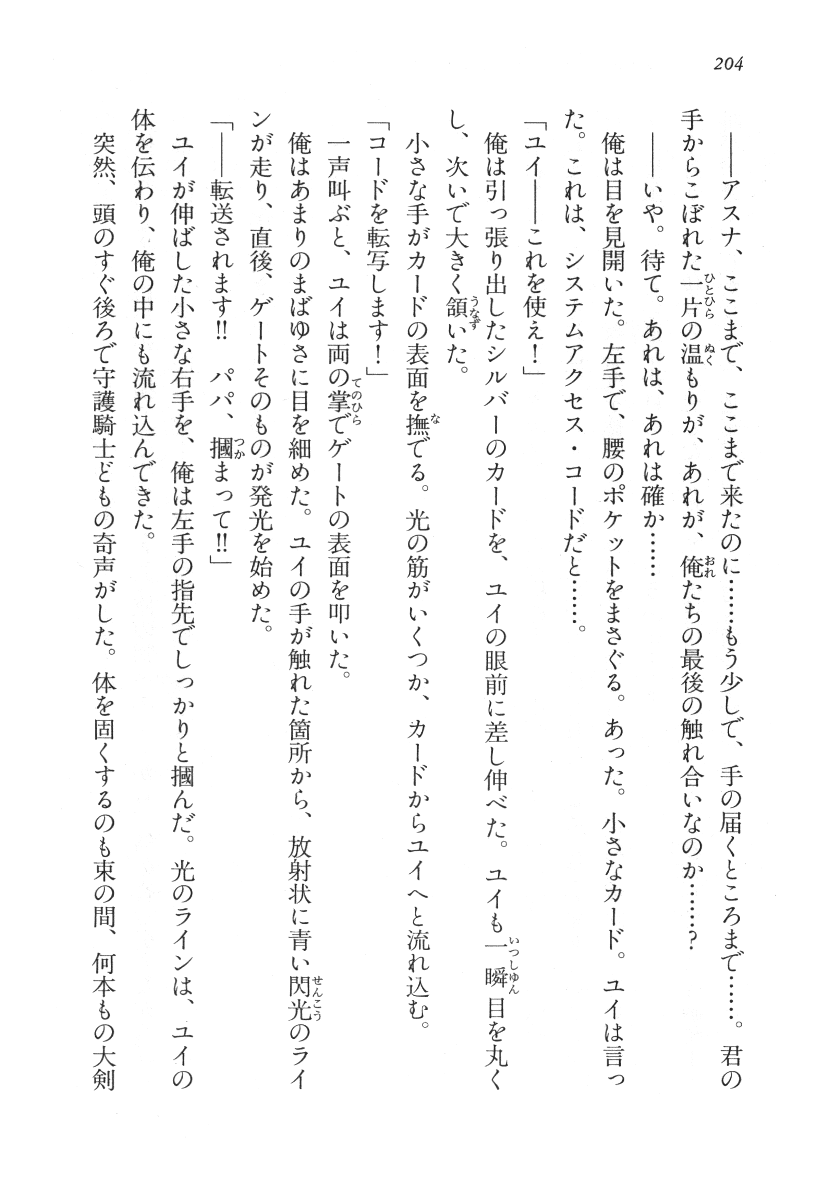 204
――アスナ、ここまで、ここまで来たのに……もう少しで、手の届くところまで……。君の
手からこぼれた一片の温もりが、あれが、俺たちの最後の触れ合いなのか……？
――いや。待て。あれは、あれは確か……
俺は目を見開いた。左手で、腰のポケットをまさぐる。あった。小さなカード。ユイは言っ
た。これは、システムアクセス・コードだと……。
「ユイ――これを使え！」
俺は引っ張り出したシルバーのカードを、ユイの眼前に差し伸べた。ユイも一瞬目を丸く
し、次いで大きく頷いた。
小さな手がカードの表面を撫でる。光の筋がいくつか、カードからユイへと流れ込む。
「コードを転写します！」
一声叫ぶと、ユイは両の掌でゲートの表面を叩いた。
俺はあまりのまばゆさに目を細めた。ユイの手が触れた箇所から、放射状に青い閃光のライ
ンが走り、直後、ゲートそのものが発光を始めた。
「――転送されます!!　パパ、摑まって!!」
ユイが伸ばした小さな右手を、俺は左手の指先でしっかりと摑んだ。光のラインは、ユイの
体を伝わり、俺の中にも流れ込んできた。
突然、頭のすぐ後ろで守護騎士どもの奇声がした。体を固くするのも束の間、何本もの大剣